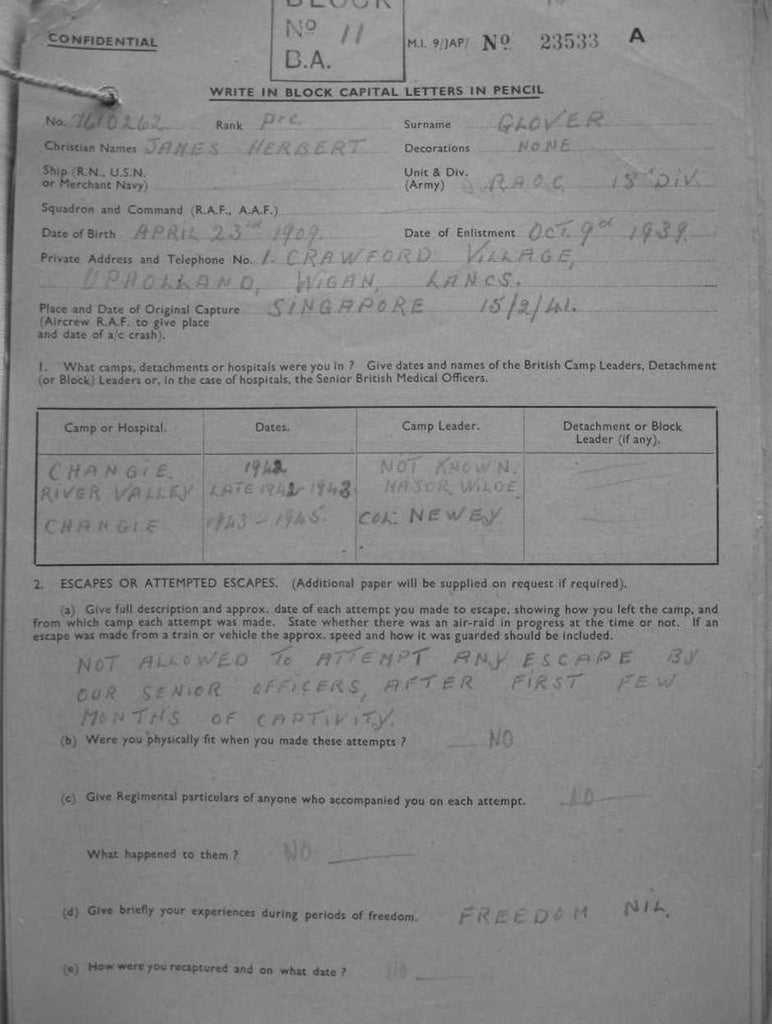 BLOCK
CONFIDENTIAL
Nº 11
B.A.
M.I. 9/JAP/ Nº 23533 A
WRITE IN BLOCK CAPITAL LETTERS IN PENCIL
No. 7610262 Rank Pte Surname GLOVER
Christian Names JAMES HERBERT Decorations NONE
Ship (R.N., U.S.N. or Merchant Navy)
Unit & Div. (Army) RAOC 18th DIV.
Squadron and Command (R.A.F., A.A.F.)
Date of Birth APRIL 23rd 1909 Date of Enlistment OCT. 9th 1939.
Private Address and Telephone No. 1. CRAWFORD VILLAGE,
UPHOLLAND, WIGAN, LANCS.
Place and Date of Original Capture SINGAPORE 15/2/41.
(Aircrew R.A.F. to give place
and date of a/c crash).
1. What camps, detachments or hospitals were you in ? Give dates and names of the British Camp Leaders, Detachment
(or Block) Leaders or, in the case of hospitals, the Senior British Medical Officers.
Camp or Hospital. Dates. Camp Leader. Detachment or Block Leader (if any).
CHANGIE. 1942 NOT KNOWN.
RIVER VALLEY LATE 1942-1943 MAJOR WILDE
CHANGIE 1943-1945. COL: NEWEY
2. ESCAPES OR ATTEMPTED ESCAPES. (Additional paper will be supplied on request if required).
(a) Give full description and approx. date of each attempt you made to escape, showing how you left the camp, and
from which camp each attempt was made. State whether there was an air-raid in progress at the time or not. If an
escape was made from a train or vehicle the approx. speed and how it was guarded should be included.
NOT ALLOWED TO ATTEMPT ANY ESCAPE BY
OUR SENIOR OFFICERS, AFTER FIRST FEW
MONTHS OF CAPTIVITY.
(b) Were you physically fit when you made these attempts ? NO
(c) Give Regimental particulars of anyone who accompanied you on each attempt. NO
What happened to them ? NO
(d) Give briefly your experiences during periods of freedom. FREEDOM NIL.
(e) How were you recaptured and on what date ? NO